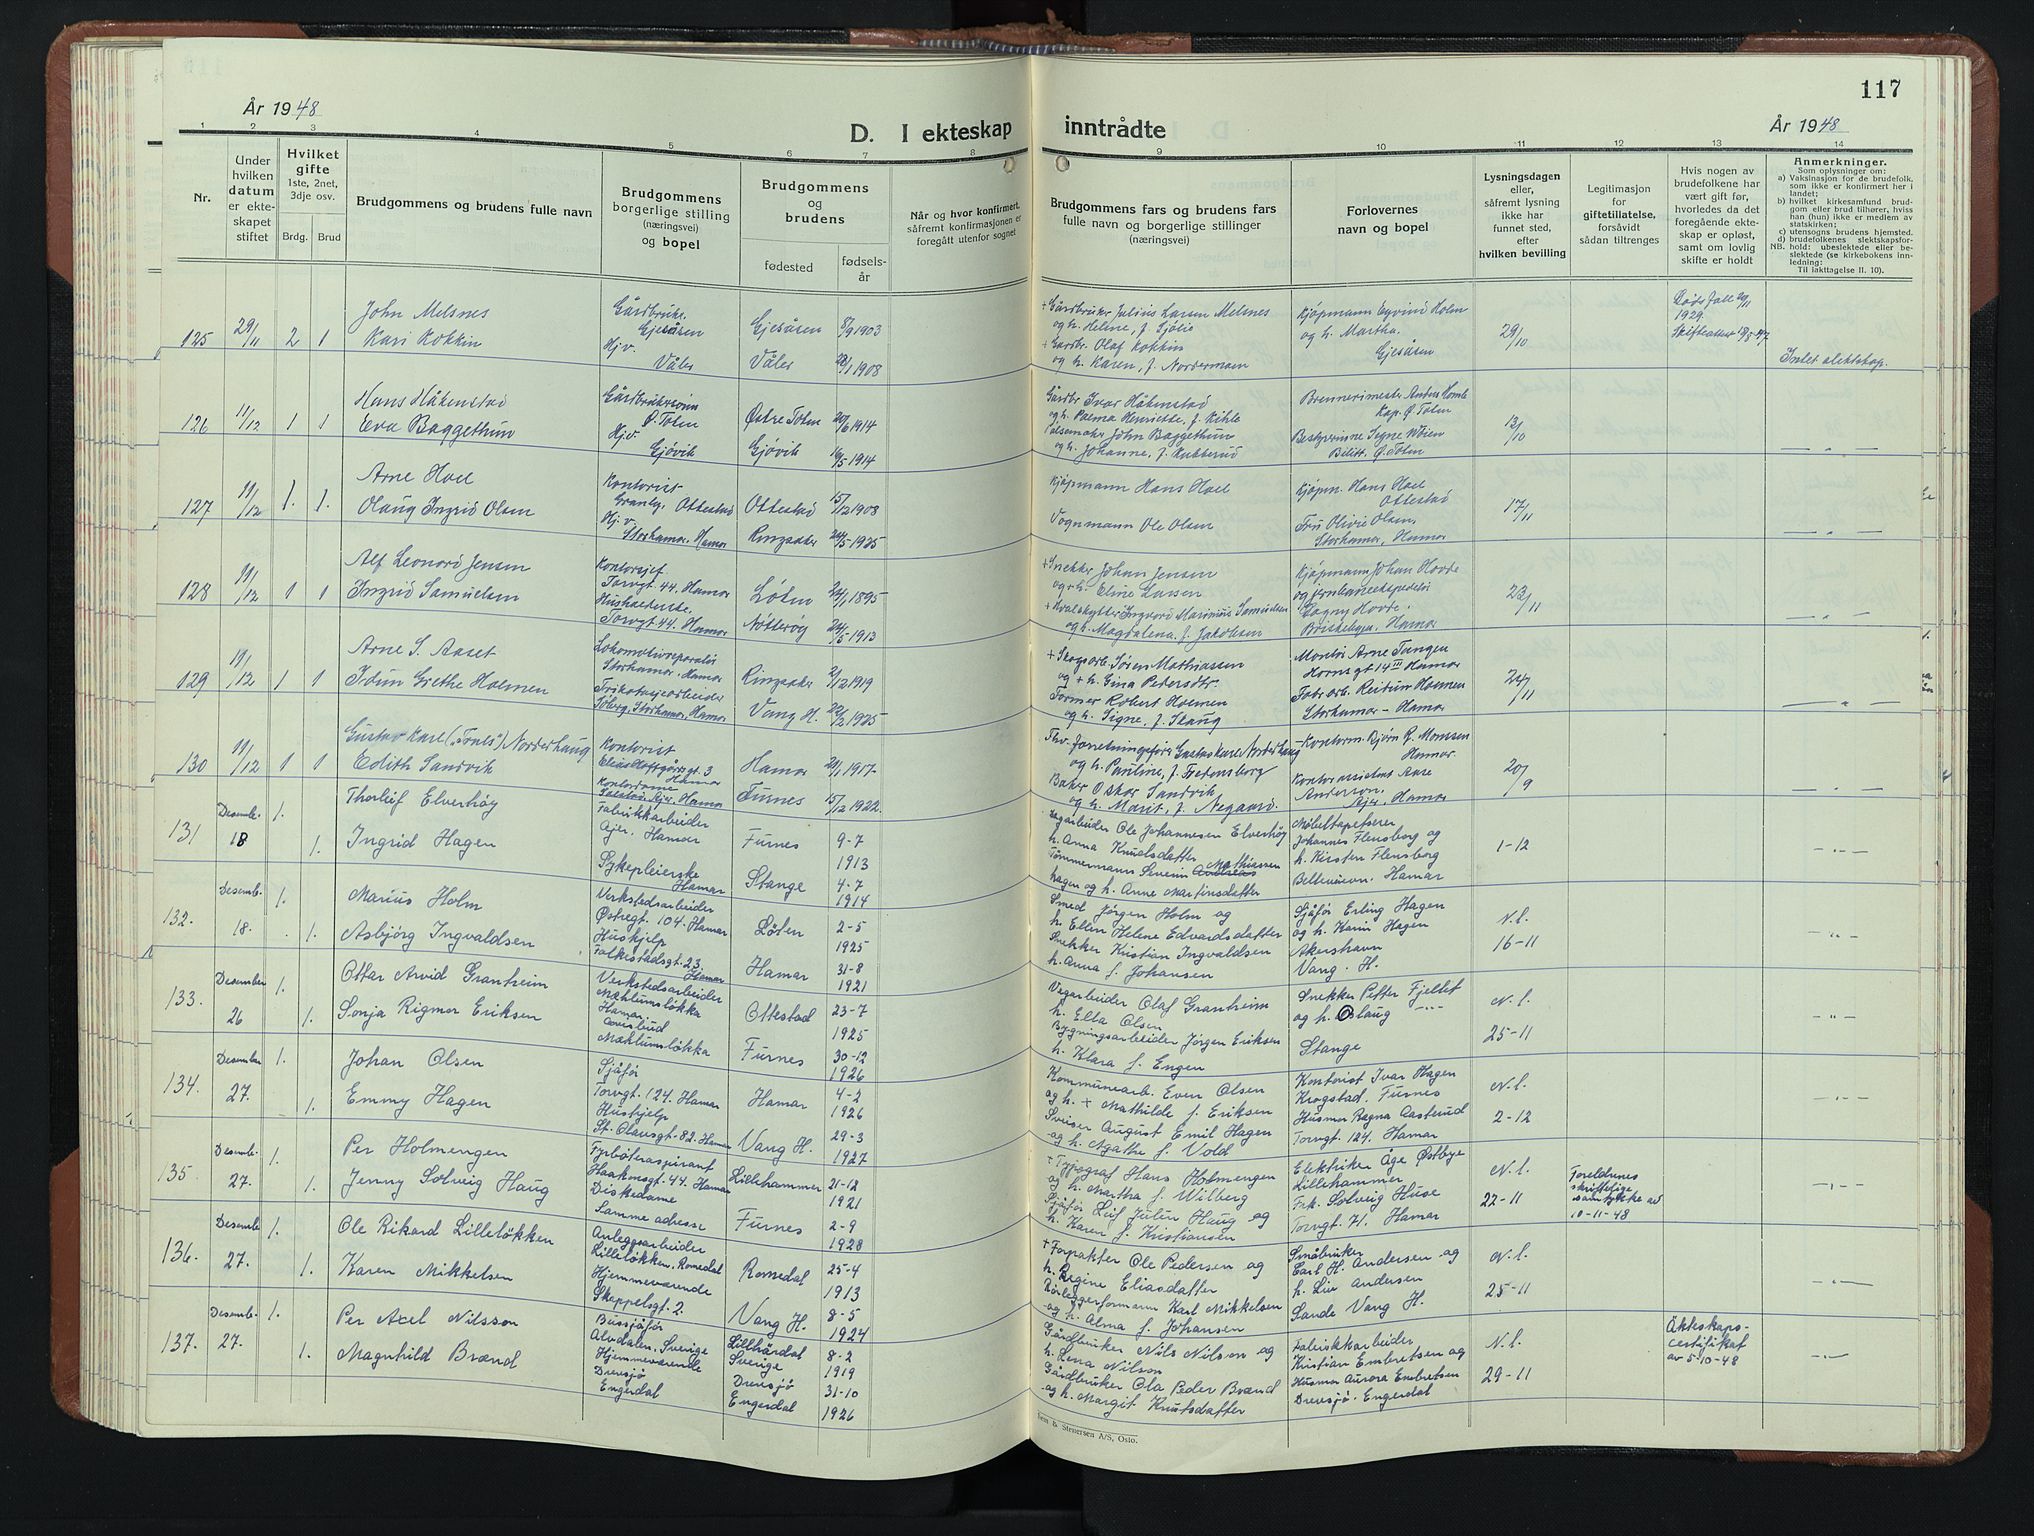 117
År 1948
D. I ekteskap inntrådte
År 1948
1 2 3 4 5 6 7 8 9 10 11 12 13 14
Nr.
Under hvilken datum er ekteskapet stiftet
Hvilket gifte 1ste, 2net, 3dje osv.
Brdg. Brud
Brudgommens og brudens fulle navn
Brudgommens borgerlige stilling (næringsvei) og bopel
Brudgommens og brudens
fødested
fødselsår
Når og hvor konfirmert, såfremt konfirmasjonen er foregått utenfor sognet
Brudgommens fars og brudens fars fulle navn og borgerlige stillinger (næringsvei)
Forlovernes navn og bopel
Lysningsdagen eller, såfremt lysning ikke har funnet sted, efter hvilken bevilling
Legitimasjon for giftetillatelse, forsåvidt sådan tiltrenges
Hvis nogen av brudefolkene har vært gift før, hvorledes da det foregående ekteskap er opløst, samt om lovlig skifte er holdt
Anmerkninger.
Som oplysning om:
a) Vaksinasjon for de brudefolk, som ikke er konfirmert her i landet;
b) hvilket kirkesamfund brudgom eller brud tilhører, hviss han (hun) ikke er medlem av statskirken;
c) utensogns brudens hjemsted.
d) brudefolkenes slektskapsforhold: ubeslektede eller beslektede (se kirkebokens innledning:
NB.
Til iakttagelse II. 10).
125 29/11 2 1
John Melsnes
Kari Kokkin
Gårdbruke.
Gjesåsen
Hjv.
Våler
Gjesåsen 5/9 1903
Våler 1908
+ Gårdbruker Julius Larsen Melsnes
og h. Helene, f. Sjølie
+ Gårdbr. Olaf Kokkin
og h. Karen, f. Nordermoen
Kjøpmann Eyvind Holm
og h. Martha.
Gjesåsen
29/10
Dødsfall 20/11
1929.
Intet slektskap.
126 11/12 1 1
Hans Håkenstad
Eva Baggethun
Gårdbrukersønn
Ø. Toten
Hjv.
Gjøvik
Østre Toten 20/6 1914
Gjøvik 16/5 1914
Gårdbr Ivar Håkenstad
og h. Palma Henriette, f. Kihle
Pølsemaker John Baggethun
og h. Johanne, f. Kubberud
Kap. Ø. Toten
Bestyrerinne Signe Wøien
Belitt. Ø. Toten
13/10
127 11/12 1. 1.
Arne Hoel
Olaug Ingrid Olsen
Kontorist
Granly, Ottestad
Hj. v.
Storhamar, Hamar
Ottestad 15/12 1908
Ringsaker 24/5 1925
Kjøpmann Hans Hoel
Vognmann Ole Olsen
Kjøpm. Hans Hoel
Ottestad
Fru Olivie Olsen,
Storhamar, Hamar
17/11
128 11/12 1 1
Alf Leonard Jensen
Ingrid Samuelsen
Kontorsjef
Torvgt. 44. Hamar
Husholderske
Torvgt. 44. Hamar
Løten 24/1 1895
Nøtterøy 24/5 1913
+ Snekker Johan Jensen
og h. Eline Larsen
+ Hvalskytter Ingvard Marinius Samuelsen
og h. Magdalena, f. Jakobsen
Kjøpmann Johan Hovde
og jernbaneekspeditør
Dagny Hovde.
Briskebyen, Hamar
23/11
129 11/12 1 1
Arne S. Aaset
Idun Grethe Holmen
Lokomotivreparatør
Storhamar, Hamar
Trikotasjearbeider
Solberg, Storhamar, Hamar
Ringsaker 2/12 1919
Vang H. 22/2 1925
+ Skogsarb. Søren Mathiassen
og + h. Gina Petersdtr.
Former Robert Holmen
og h. Signe, f. Stang
Montør Arne Tangen
Hornsgt 14 III Hamar
Fabr. arb. Reidun Holmen
Storhamar - Hamar
24/11
130 11/12 1 1
Gustav Kare („Truls") Norderhaug
Edith Sandvik
Kontorist
gt. 3
Hamar
Kontordame
Ajer, Hamar
Hamar 21/1 1917
Furnes 15/12 1922
Thv. forretningsfører Gustav Kare Norderhaug
og h. Pauline, f. Fredensborg
Baker Oskar Sandvik
og h. Marit, f. Negaard.
Kontorm. Bjørn G. Monssen
Hamar
Kontorassistent Aase
Anderson,
Ajer, Hamar
20/9
131 Desemb. 18 1. 1.
Thorleif Elverhøy
Ingrid Hagen
Fabrikkarbeider
Ajer, Hamar
Sykepleierske
Hamar
Furnes 9-7 1913
Stange 4-7 1914
Vegarbeider Ole Johannesen Elverhøy
h. Anna Knudsdatter
Tømmermann Severin Andreas Mathiassen
Hagen og h. Anne Martinsdatter
Møbeltapetserer
Johannes Flensborg og
h. Kirsten Flensborg
Bellevuevn. Hamar
1-12
132. Desemb. 18. 1. 1.
Marius Holm
Asbjørg Ingvaldsen
Verkstedsarbeider
Østregt. 104. Hamar
Hushjelp
Falkestadsgt. 23. Hamar
Løten 2-5 1925
Hamar 31-8 1921
Smed Jørgen Holm og
h. Ellen Helene Edvardsdatter
Snekker Kristian Ingvaldsen
h. Anna f. Johansen
Sjåfør Erling Hagen
og h. Karin Hagen
Akershavn
Vang. H.
N. l.
16-11
133. Desember 26 1. 1.
Ottar Arvid Granheim
Sonja Rigmor Eriksen
Verkstedsarbeider
Mæhlumsløkka
Hamar
Mæhlumsløkka
Ottestad 23-7 1925
Furnes 30-12 1926
Vegarbeider Olaf Granheim
h. Ella Olsen
Bygningsarbeider Jørgen Eriksen
h. Klara f. Engen
Snekker Petter Fjeltet
og h. Olaug -"-
Stange
N. l.
25-11
134. Desember 27. 1. 1.
Johan Olsen
Emmy Hagen
Sjåfør
Torvgt. 124. Hamar
Hushjelp
St. Olavsgt. 82. Hamar
Hamar 4-2 1926
Vang H. 29-3 1927
Kommunearb. Even Olsen
og h. + Mathilde f. Eriksen
Sveiser August Emil Hagen
og h. Agathe f. Vold
Kontorist Ivar Hagen
Krogstad. Furnes
Husmor Ragna Aasterud
Torvgt. 124. Hamar
N. l.
2-12
135. Desemb. 27. 1. 1.
Per Holmengen
Jenny Solveig Haug
Fyrbøteraspirant
Haakonsgt. 44. Hamar
Diskedame
Samme adresse
Lillehammer 21-12 1921
Furnes 2-9 1928
+ Typograf Hans Holmengen
og h. Martha f. Wilberg
Sjåfør Leif Julin Haug og
h. Karen f. Kristiansen
Elektriker Åge Østbye
Lillehammer
Frk. Solveig Huse
Torvgt. 41. Hamar
N. l.
22-11
Foreldrenes
skriftlige
samtykke av
10-11-48
136. Desemb. 27. 1. 1.
Ole Rikard Lilleløkken
Karen Mikkelsen
Anleggsarbeider
Lilleløkken, Romedal
Hjemmeværende
Skappelsgt. 2.
Romedal 25-4 1913
Vang H. 8-5 1924
+ Forpakter Ole Pedersen og
h. Regine Eliasdatter
Rørleggerformann Karl Mikkelsen
og h. Alma f. Johansen
Småbruker
Carl H. Andersen og
h. Liv Andersen
Sande Vang H.
N. l.
25-11
137. Desemb. 27. 1. 1.
Per Axel Nilsson
Magnhild Brænd
Bussjåfør
Alvdalen, Sverige
Hjemmeværende
Drevsjø
Engerdal
Lillhärdal
Sverige 8-2 1919
Drevsjø
Engerdal 31-10 1926
Gårdbruker Nils Nilsson og
h. Lena Nilsson
Gårdbruker Ola Peder Brænd
og h. Margit Knutsdatter
Fabrikkarbeider
Kristian Embretsen og
Husmor Aurora Embretsen
Drevsjø. Engerdal
N. l.
29-11
Äkteskaps-
certifikat
av 5-10-48
& Stenersen A/S, Oslo.